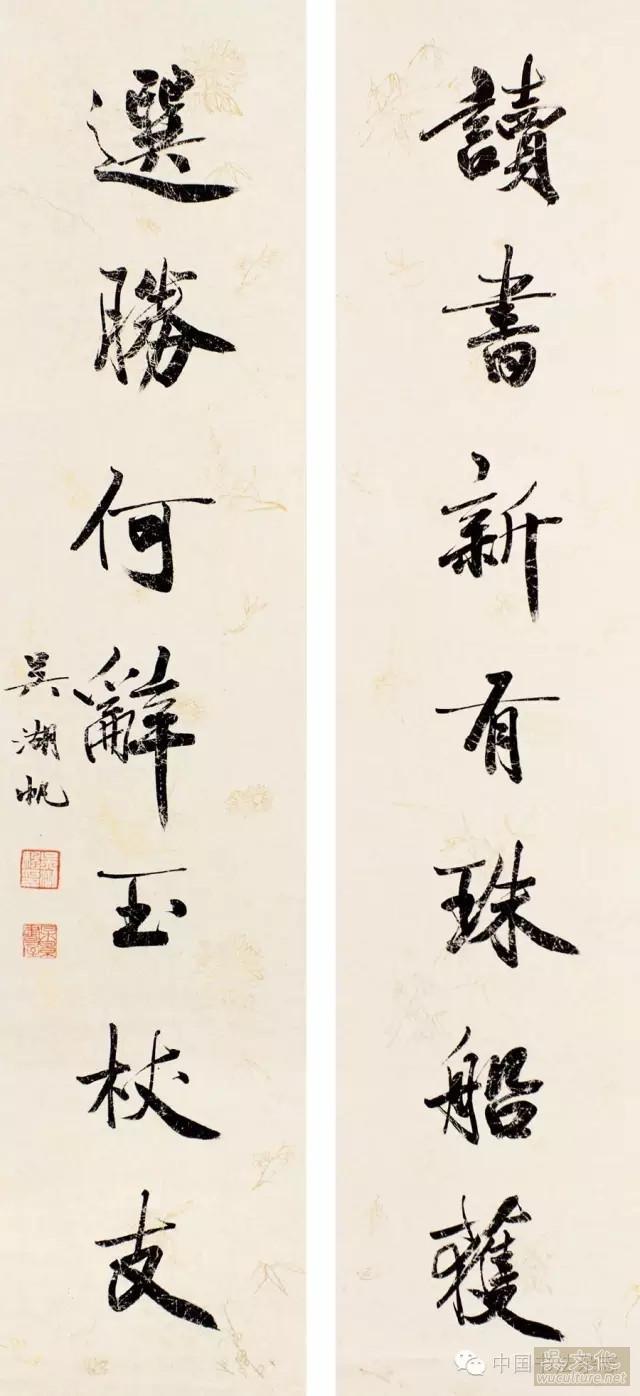 讀書新有珠船獲
選勝何辭玉杖支
吳湖帆
吳文化
wuculture.net